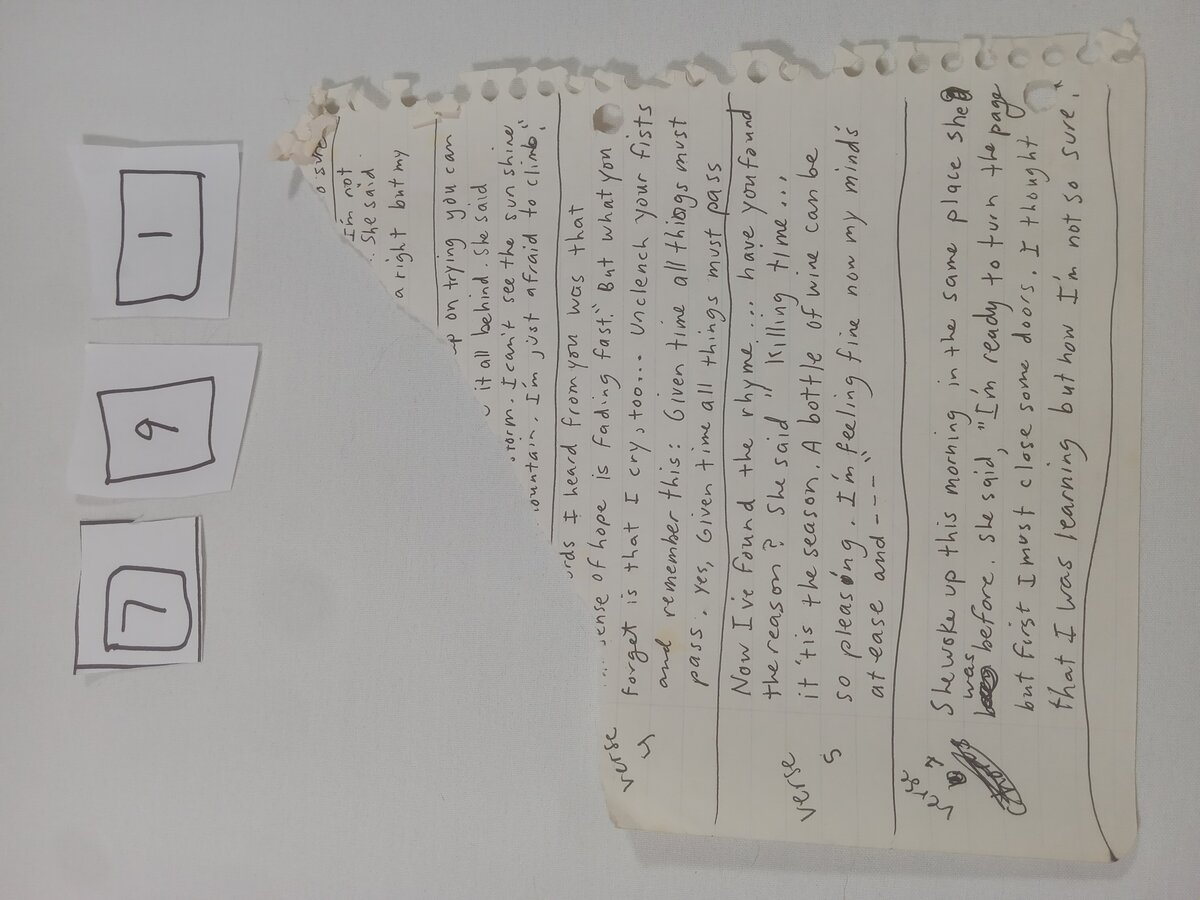 7 9 1
o sure
I'm not
. She said
a right but my
up on trying you can
it all behind. She said
torm. I can't see the sun shine
ountain. I'm just afraid to climb."
ords I heard from you was that
sense of hope is fading fast." But what you
verse 4 forget is that I cry, too... Unclench your fists
and remember this: Given time all things must
pass. Yes, Given time all things must pass
Now I've found the rhyme... have you found
the reason? She said "killing time...
verse 5 it 'tis the season. A bottle of wine can be
so pleasing. I'm feeling fine now my minds
at ease and ---"
She woke up this morning in the same place she
was before. She said, "I'm ready to turn the page
but first I must close some doors. I thought
that I was learning but now I'm not so sure."